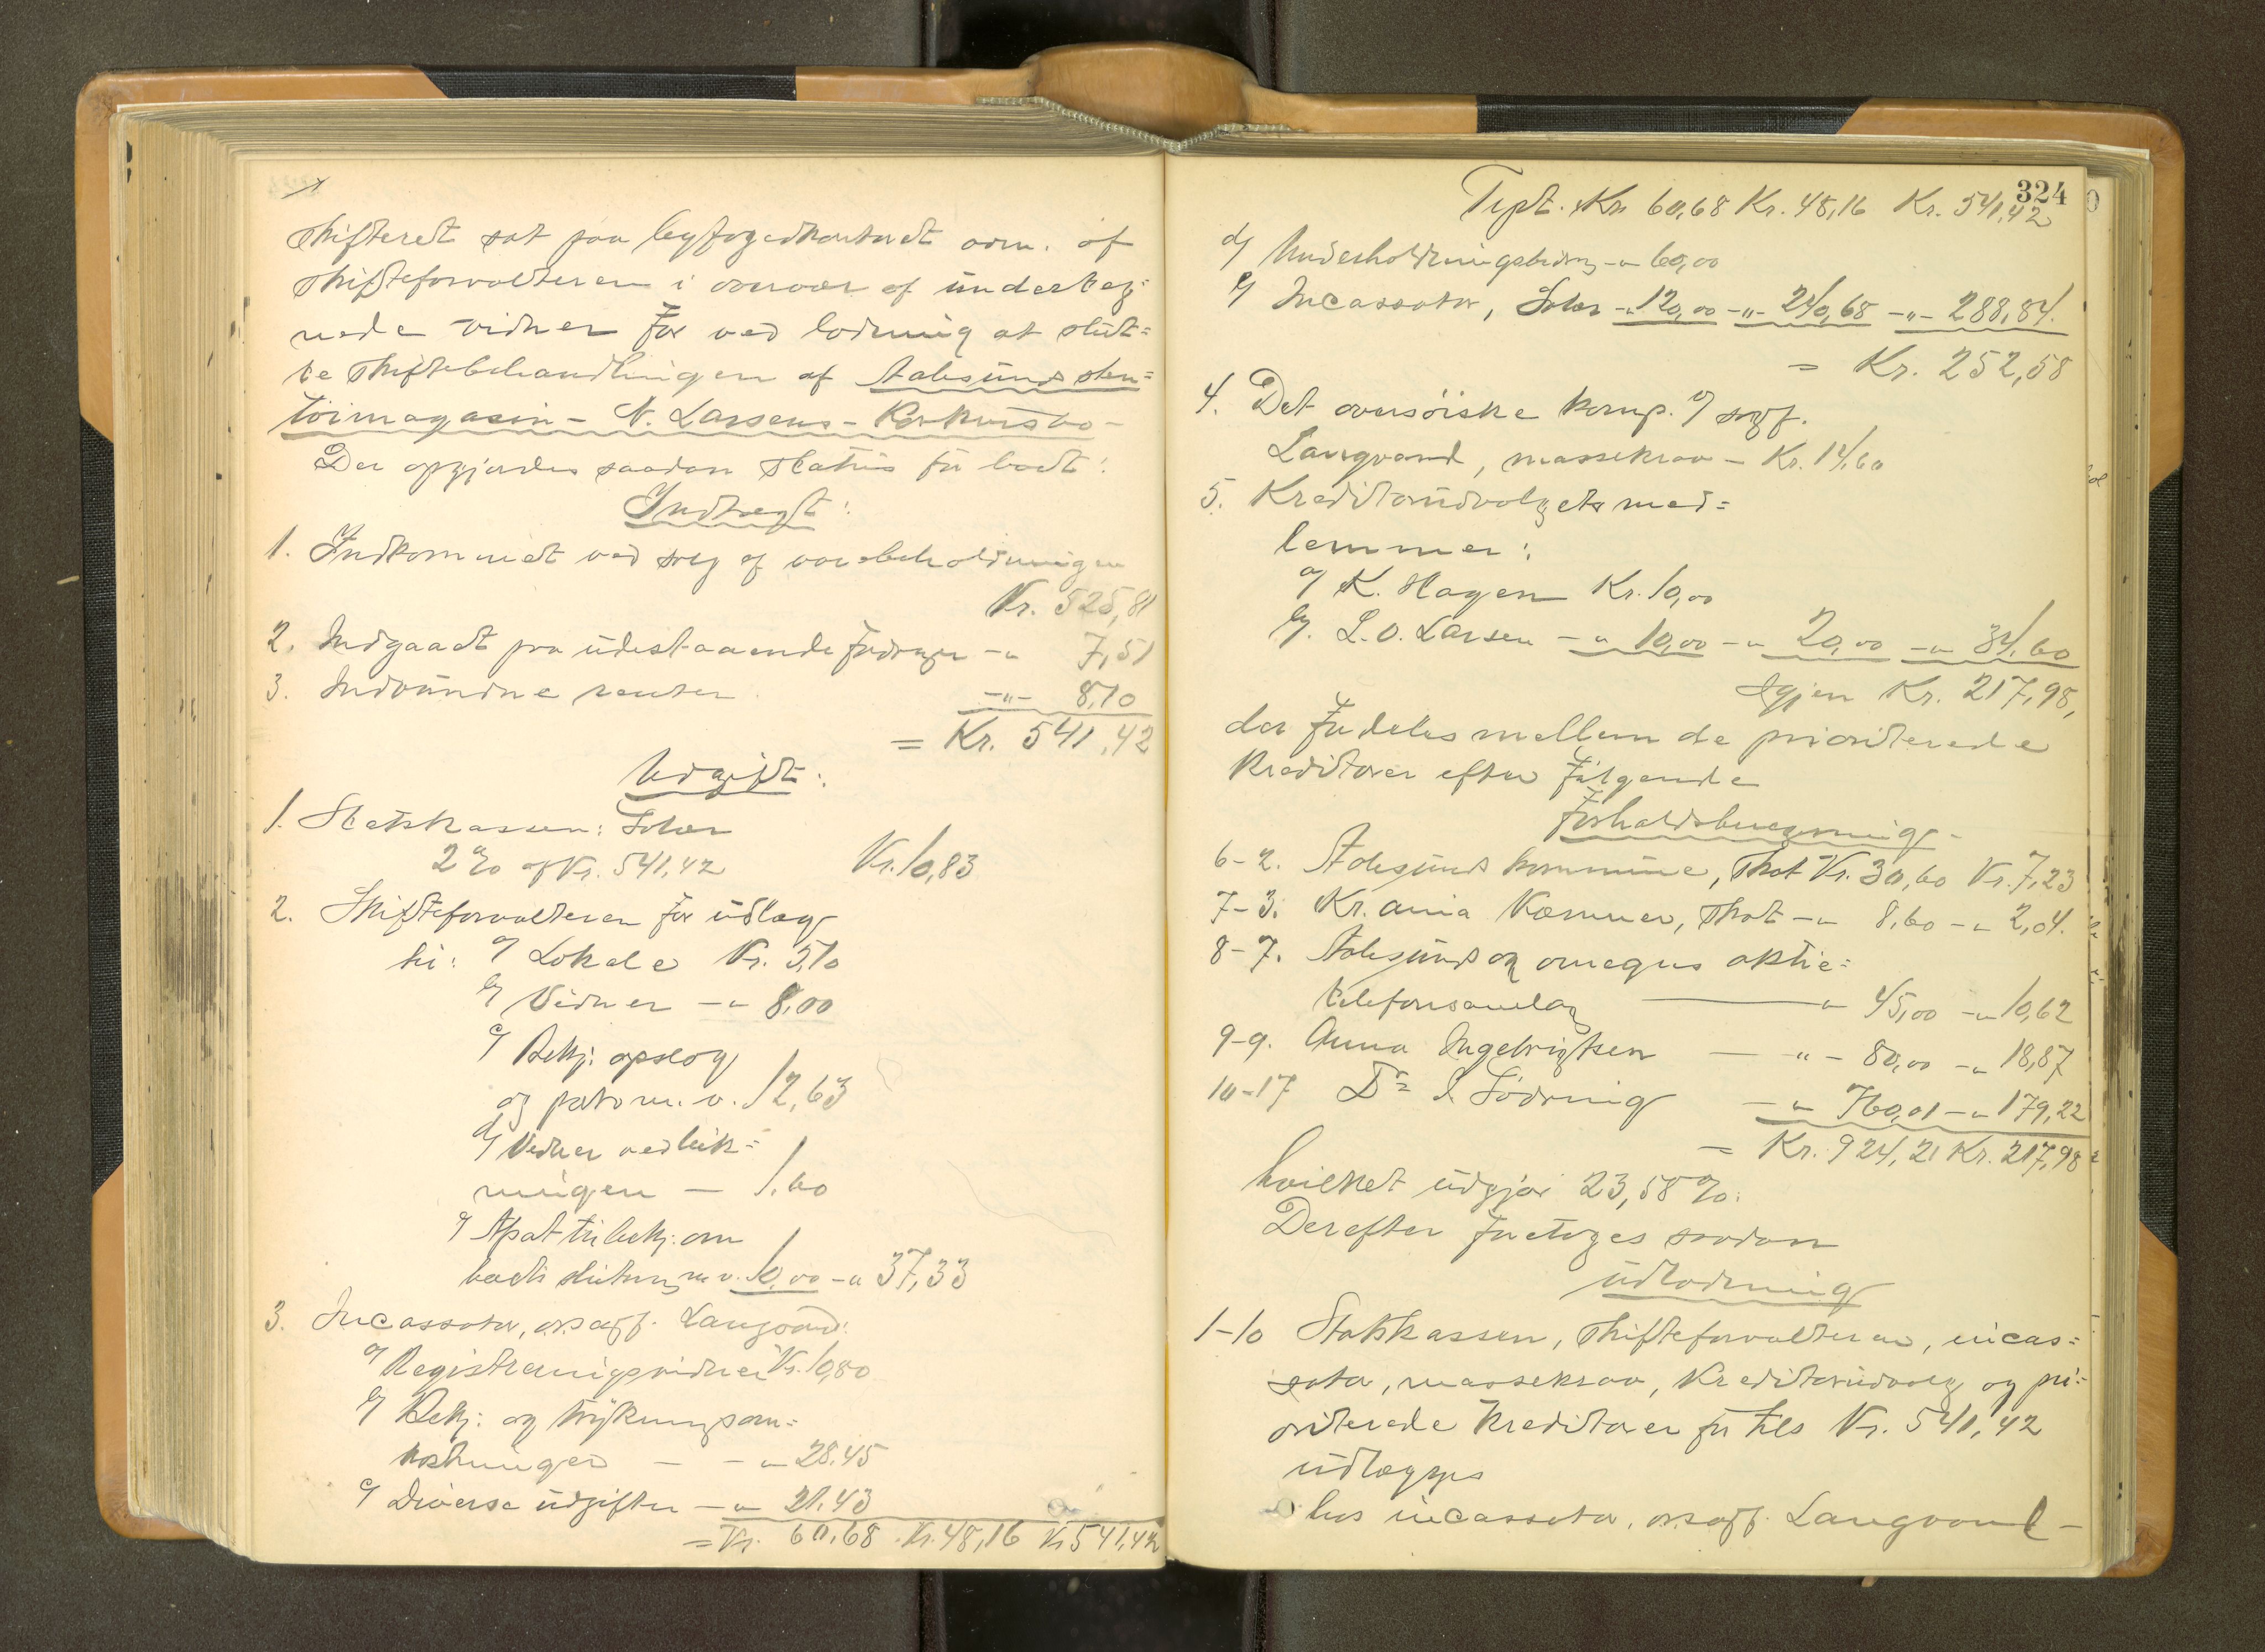 skifteret sat paa byfogedkontoret adm. af
skifteforvalteren i overvær af underteg=
nede vidner for ved lodning at slut=
te skiftebehandlingen af Aalesunds sten=
töimagasin - N. Larsens - Konkursbo -
Der opgjordes saadan status for boet:
Indtægt:
1. Indkommet ved salg af varebeholdningen
Kr. 525,81
2. Indgaaet paa udestaaende fordringer -„ 7,51
3. Indvundne renter -„- 8,10
= Kr. 541,42
Udgift:
1. Statskassen: Solær
2 % af Kr. 541,42 Kr. 10,83
2. Skifteforvalteren for udlæg
til: a/ Lokale Kr. 5,10
b/ Vidner -„ 8,00
c/ Bekj. opslag
og porto m. v. 12,63
d/ Vidner ved luk=
ningen - 1,60
e/ Afsat til bekj. om
boets slutning m v. 10,00 -„ 37,33
3. Incassator, o.r.sagf. Langvand:
a/ Registreringsvidner Kr. 10,80
b/ Bekj: og trykningsom=
kostninger - -„ 28,45
c/ Diverse udgifter -„ 21,43
= Kr. 60,68 Kr. 48,16 Kr 541,42
324
Trpt. Kr 60,68 Kr. 48,16 Kr. 541,42
d/ Underholdningsbidrag -„ 60,00
e/ Incassator, Solær -„ 120,00 -„- 240,68 -„- 288,84.
= Kr. 252,58
4. Det oversöiske komp. v/ sagf.
Langvand, massekrav - Kr. 14,60
5. Kreditorudvalgets med=
lemmer:
a/ K. Hagen Kr. 10,00
b/. L. O. Larsen -„ 10,00 -„ 20,00 -„ 34,60
Igjen Kr. 217,98,
der fordeles mellem de prioriterede
kreditorer efter fölgende
Forholdsberegning.
6-2. Aalesunds kommune, skat Kr. 30,60 Kr. 7,23
7-3. Kr.ania Kæmner, skat -„ 8,60 -„ 2,04.
8-7. Aalesunds og omegns aktie=
telefonsamlag „ 45,00 -„ 10,62
9-9. Anna Ingebrigtsen - „ - 80,00 -„ 18,87
10-17 Dr S. Södring -„ 760,01 -„ 179,22
= Kr. 924,21 Kr. 217,98
hvilket udgjör 23,58 %.
Derefter foretoges saadan
udlodning
1-10 Statskassen, skifteforvalteren, incas=
sator, massekrav, kreditorudvalg og pri=
oriterede kreditorer for tils Kr. 541,42
udlægges
hos incassator, o.r.sagf. Langvand -